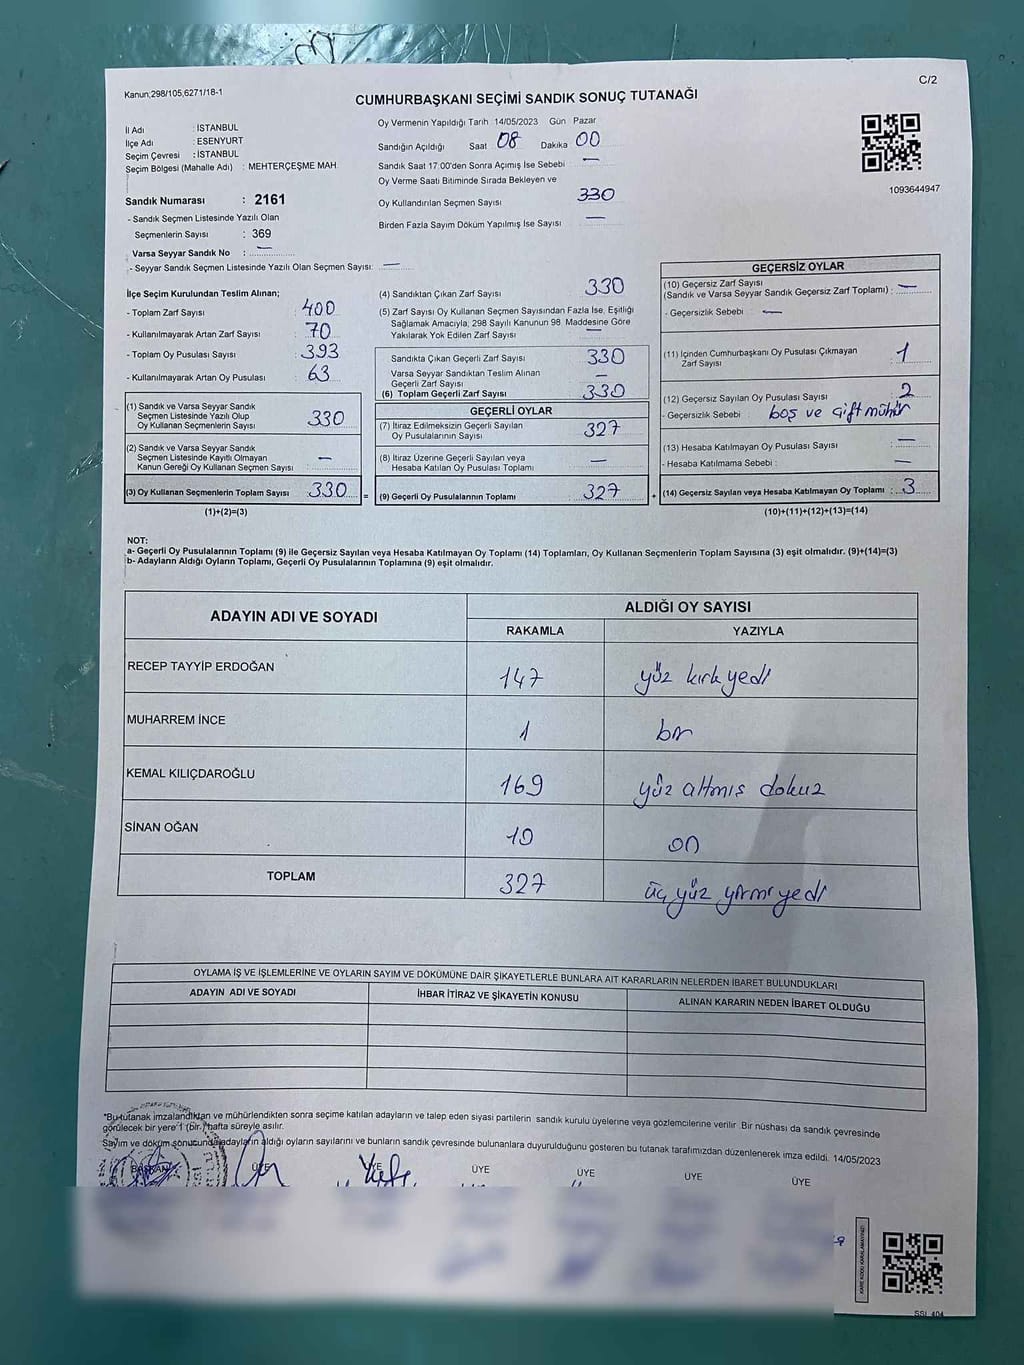 C/2
Kanun:298/105,6271/18-1
CUMHURBAŞKANI SEÇİMİ SANDIK SONUÇ TUTANAĞI
İl Adı : İSTANBUL
İlçe Adı : ESENYURT
Seçim Çevresi : İSTANBUL
Seçim Bölgesi (Mahalle Adı) : MEHTERÇEŞME MAH.
Sandık Numarası : 2161
- Sandık Seçmen Listesinde Yazılı Olan
Seçmenlerin Sayısı : 369
Varsa Seyyar Sandık No : —
- Seyyar Sandık Seçmen Listesinde Yazılı Olan Seçmen Sayısı: —
Oy Vermenin Yapıldığı Tarih 14/05/2023 Gün Pazar
Sandığın Açıldığı Saat 08 Dakika 00
Sandık Saat 17:00'den Sonra Açımış İse Sebebi —
Oy Verme Saati Bitiminde Sırada Bekleyen ve
Oy Kullandırılan Seçmen Sayısı 330
Birden Fazla Sayım Döküm Yapılmış İse Sayısı —
1093644947
İlçe Seçim Kurulundan Teslim Alınan;
- Toplam Zarf Sayısı : 400
- Kullanılmayarak Artan Zarf Sayısı : 70
- Toplam Oy Pusulası Sayısı : 393
- Kullanılmayarak Artan Oy Pusulası : 63
(1) Sandık ve Varsa Seyyar Sandık
Seçmen Listesinde Yazılı Olup
Oy Kullanan Seçmenlerin Sayısı : 330
(2) Sandık ve Varsa Seyyar Sandık
Seçmen Listesinde Kayıtlı Olmayan
Kanun Gereği Oy Kullanan Seçmen Sayısı : —
(3) Oy Kullanan Seçmenlerin Toplam Sayısı : 330 =
(1)+(2)=(3)
(4) Sandıktan Çıkan Zarf Sayısı : 330
(5) Zarf Sayısı Oy Kullanan Seçmen Sayısından Fazla İse, Eşitliği
Sağlamak Amacıyla; 298 Sayılı Kanunun 98. Maddesine Göre
Yakılarak Yok Edilen Zarf Sayısı : —
Sandıkta Çıkan Geçerli Zarf Sayısı : 330
Varsa Seyyar Sandıktan Teslim Alınan
Geçerli Zarf Sayısı : —
(6) Toplam Geçerli Zarf Sayısı : 330
GEÇERLİ OYLAR
(7) İtiraz Edilmeksizin Geçerli Sayılan
Oy Pusulalarının Sayısı : 327
(8) İtiraz Üzerine Geçerli Sayılan veya
Hesaba Katılan Oy Pusulası Toplamı : —
(9) Geçerli Oy Pusulalarının Toplamı : 327 +
GEÇERSİZ OYLAR
(10) Geçersiz Zarf Sayısı
(Sandık ve Varsa Seyyar Sandık Geçersiz Zarf Toplamı) : —
- Geçersizlik Sebebi : —
(11) İçinden Cumhurbaşkanı Oy Pusulası Çıkmayan
Zarf Sayısı : 1
(12) Geçersiz Sayılan Oy Pusulası Sayısı : 2
- Geçersizlik Sebebi : boş ve çift mühür
(13) Hesaba Katılmayan Oy Pusulası Sayısı : —
- Hesaba Katılmama Sebebi : —
(14) Geçersiz Sayılan veya Hesaba Katılmayan Oy Toplamı : 3
(10)+(11)+(12)+(13)=(14)
NOT:
a- Geçerli Oy Pusulalarının Toplamı (9) ile Geçersiz Sayılan veya Hesaba Katılmayan Oy Toplamı (14) Toplamları, Oy Kullanan Seçmenlerin Toplam Sayısına (3) eşit olmalıdır. (9)+(14)=(3)
b- Adayların Aldığı Oyların Toplamı, Geçerli Oy Pusulalarının Toplamına (9) eşit olmalıdır.
ADAYIN ADI VE SOYADI ALDIĞI OY SAYISI
RAKAMLA YAZIYLA
RECEP TAYYİP ERDOĞAN 147 yüz kırk yedi
MUHARREM İNCE 1 bir
KEMAL KILIÇDAROĞLU 169 yüz altmış dokuz
SİNAN OĞAN 10 on
TOPLAM 327 üç yüz yirmi yedi
OYLAMA İŞ VE İŞLEMLERİNE VE OYLARIN SAYIM VE DÖKÜMÜNE DAİR ŞİKAYETLERLE BUNLARA AİT KARARLARIN NELERDEN İBARET BULUNDUKLARI
ADAYIN ADI VE SOYADI İHBAR İTİRAZ VE ŞİKAYETİN KONUSU ALINAN KARARIN NEDEN İBARET OLDUĞU
*Bu tutanak imzalandıktan ve mühürlendikten sonra seçime katılan adayların ve talep eden siyasi partilerin sandık kurulu üyelerine veya gözlemcilerine verilir .Bir nüshası da sandık çevresinde
görülecek bir yere 1 (bir ) hafta süreyle asılır.
Sayım ve döküm sonucunda adayların aldığı oyların sayılarını ve bunların sandık çevresinde bulunanlara duyurulduğunu gösteren bu tutanak tarafımızdan düzenlenerek imza edildi. 14/05/2023
BAŞKAN ÜYE ÜYE ÜYE ÜYE ÜYE ÜYE
SSİ 404